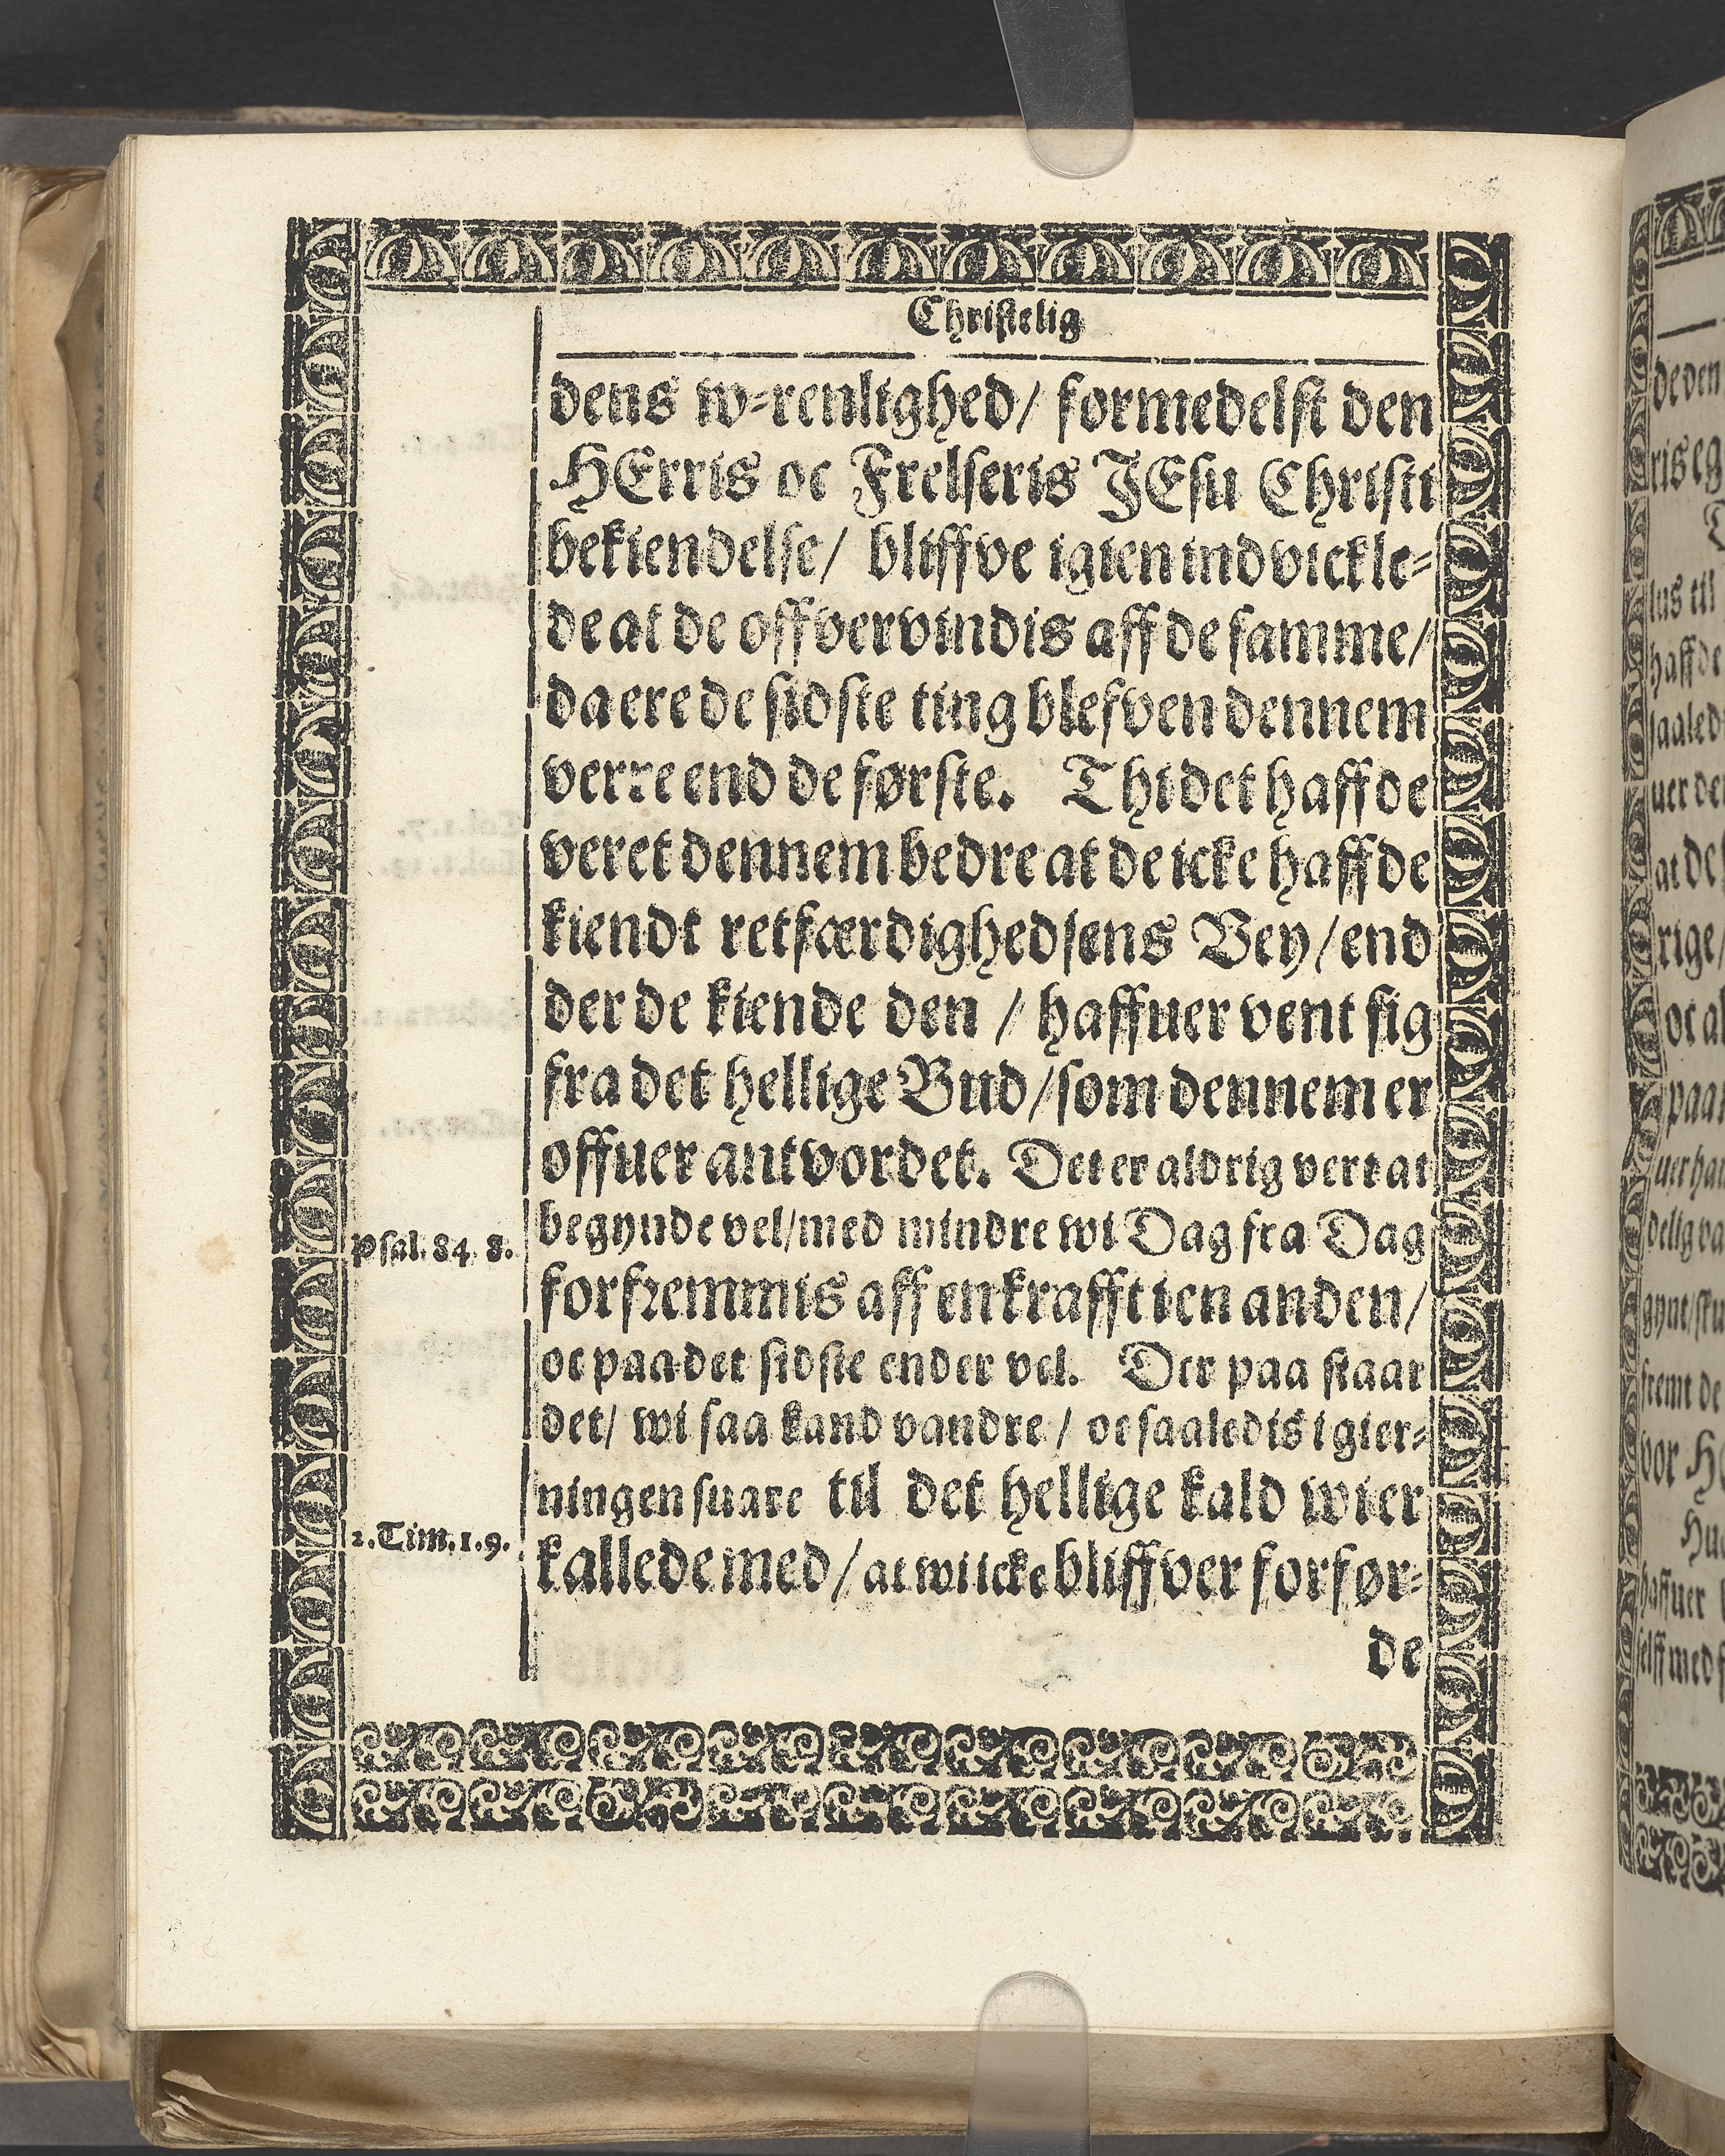 Christelig
dens w-renlighed/ formedelst den
HErris oc Frelseris JEsu Christi
bekiendelse/ bliffve igien indvickle-
de at de offvervindis aff de samme/
da ere de sidste ting blefven dennem
verre end de første. Thi det haffde
veret dennem bedre at de icke haffde
kiendt retfærdighedsens Vey/ end
der de kiende den / haffuer vent sig
fra det hellige Bud/ som dennem er
offuer antvordet. Det er aldrig vert at
Psal. 84. 8. begynde vel/ med mindre wi Dag fra Dag
forfremmis aff en krafft i en anden/
oc paa det sidste ender vel. Der paa staar
det/ wi saa kand vandre / oc saaledis i gier-
ningen suare til det hellige kald wi er
2. Tim. 1. 9. kallede med/ at wi icke bliffver forfør-
de